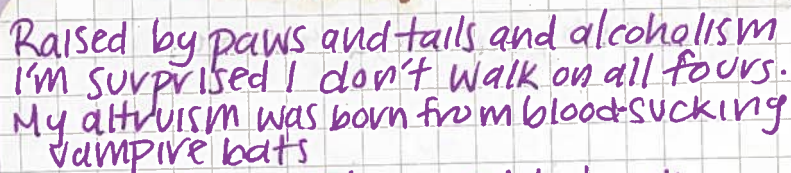 Raised by paws and tails and alcoholism
I'm surprised I don't walk on all fours.
My altruism was born from blood-sucking
vampire bats